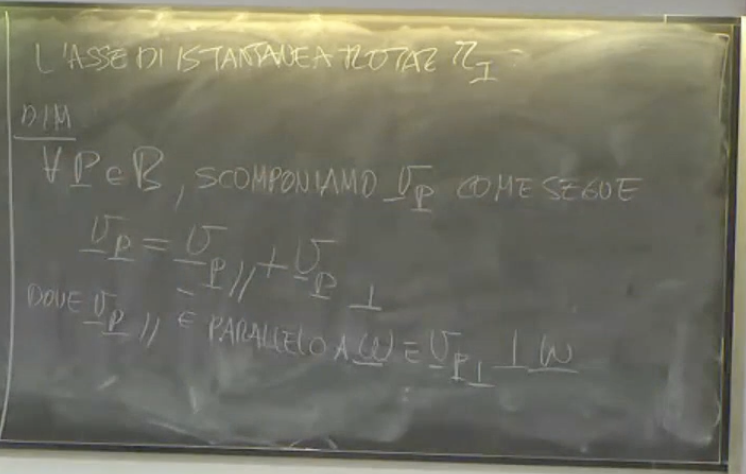 L'ASSE DI ISTANTANEA ROTAZ r_I
DIM
∀ P ∈ B, SCOMPONIAMO v_P COME SEGUE
v_P = v_P// + v_P⊥
DOVE v_P// È PARALLELO A ω E v_P⊥ ⊥ ω